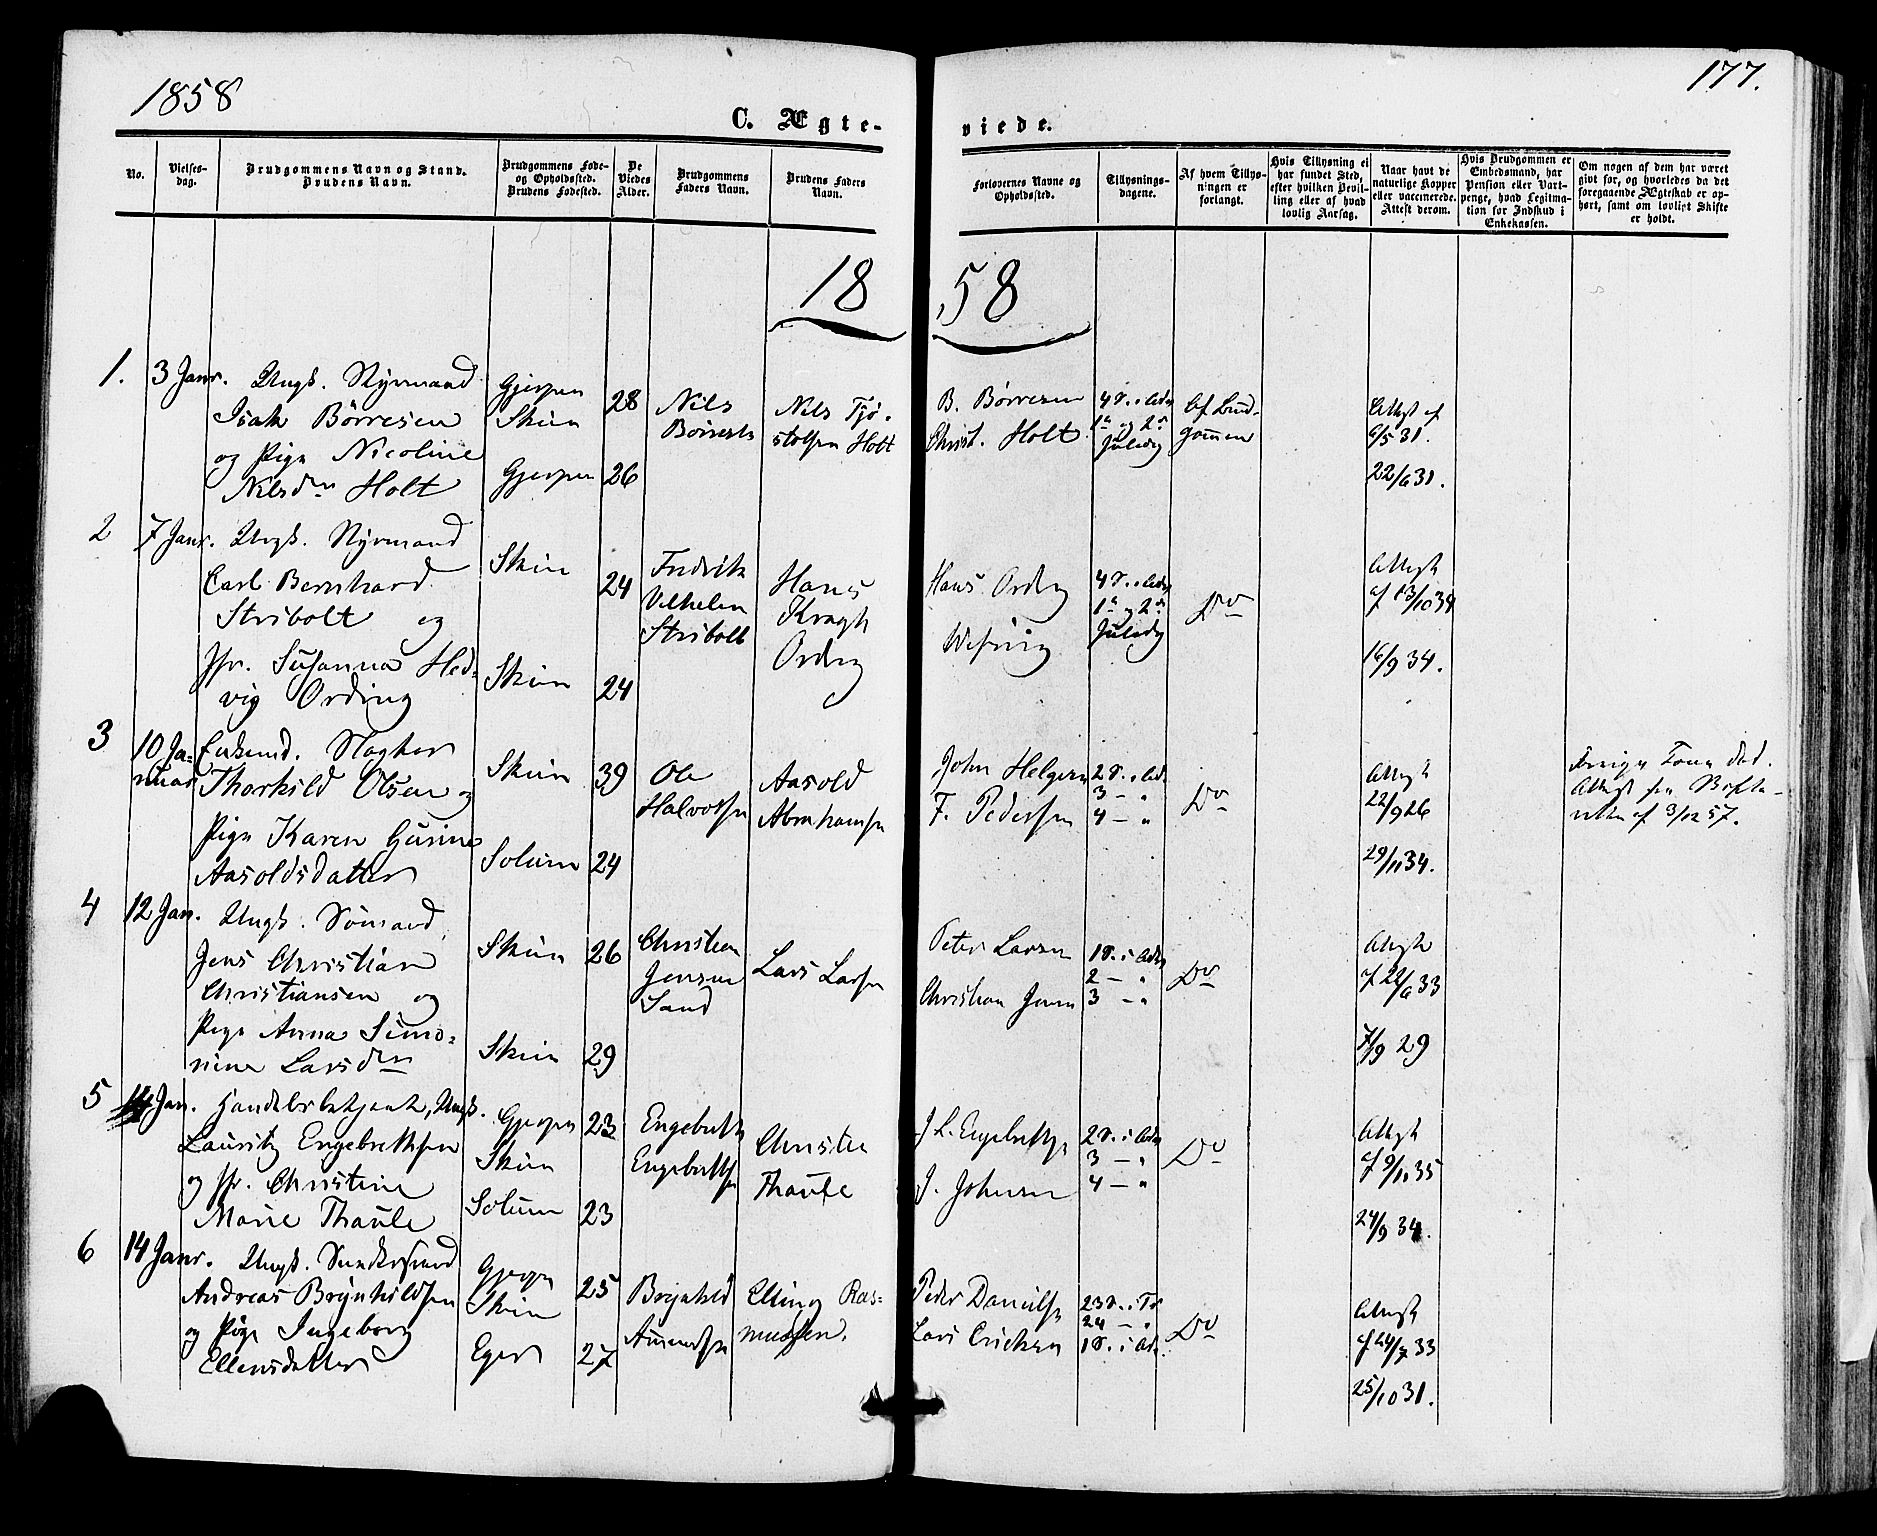 1858
177.
C. Ægte-
viede.
No.
Vielses-
dag.
Brudgommens Navn og Stand.
Brudens Navn.
Brudgommens Føde-
og Opholdssted.
Brudens Fødested.
De
Viedes
Alder.
Brudgommens
Faders Navn.
Brudens Faders
Navn.
Forlovernes Navne og
Opholdssted.
Tillysnings-
dagene.
Af hvem Tillys-
ningen er
forlangt.
Hvis Tillysning ei
har fundet Sted,
efter hvilken Bevil-
ling eller af hvad
lovlig Aarsag.
Naar havt de
naturlige Kopper
eller vaccinerede.
Attest derom.
Hvis Brudgommen er
Embedsmand, har
Pension eller Vart-
penge, hvad Legitima-
tion for Indskud i
Enkekassen.
Om nogen af dem har været
givt for, og hvorledes da det
foregaaende Ægteskab er op-
hørt, samt om lovligt Skifte
er holdt.
18
58
1.
3 Janr.
Ungk. Styrmand
Isak Börresen
og Pige Nicoline
Nilsdn Holt
Gjerpen
Skien
Gjerpen
28
26
Nils
Börresen
Nils Tjö-
stolsen Holt
B. Börresen
Christ. Holt
4 S. i Adv
1ste og 2den
Juledg
Af Brud-
gommen
Attest af
6/5 31.
22/6 31.
2
7 Janr.
Ungk. Styrmand
Carl Bernhard
Stribolt og
Jfr. Susanna Hed-
vig Ording
Skien
Skien
24
24
Fredrik
Vilhelm
Stribolt
Hans
Kragh
Ording
Hans Ording
4 S. i Adv
1ste og 2den
Juledg
Do
Attest
af 13/10 34
16/9 34.
3
10 Ja-
nuar
Enkemd. Slagter
Thorkild Olsen og
Pige Karen Gurine
Aasoldsdatter
Skien
Solum
39
24
Ole
Halvorsen
Aasold
Abrahamsen
John Helgesen
F. Pedersen
2 S. i Adv
3 — "
4 — "
Do
Attest
22/9 26
29/11 34.
Forrige Kone död.
Attest fra Skifte-
retten af 3/12 57.
4
12 Jan.
Ungk. Sömand
Jens Christian
Christiansen og
Pige Anna Simo-
nine Larsdn
Skien
Skien
26
29
Christian
Jensen
Sand
Lars Larsen
Peter Larsen
Christian Jensen
1 S. i Adv
2 — "
3 — "
Do
Attest
af 22/6 33
7/9 29
5
14 Jan.
Handelsbetjent, Ungk.
Lauritz Engebrethsen
og Jfr. Christine
Marie Thaule
Gjerpen
Skien
Solum
23
23
Engebreth
Engebrethsen
Christen
Thaule
J L. Engebrethsen
J. Johnsen
2 S. i Adv
3 — "
4 — "
Do
Attest
af 9/11 35
24/9 34.
6
14 Janr.
Ungk.
Andreas Brynhildsen
og Pige Ingeborg
Ellensdatter
Gjerpen
Skien
Eger
25
27
Brynhild
Amundsen
Elling Ras-
mussen.
Peder Danielsen
Lars Ericksen
23 S. i Tr
24 — "
1 S. i Adv.
Do
Attest
af 24/7 33
25/10 31.